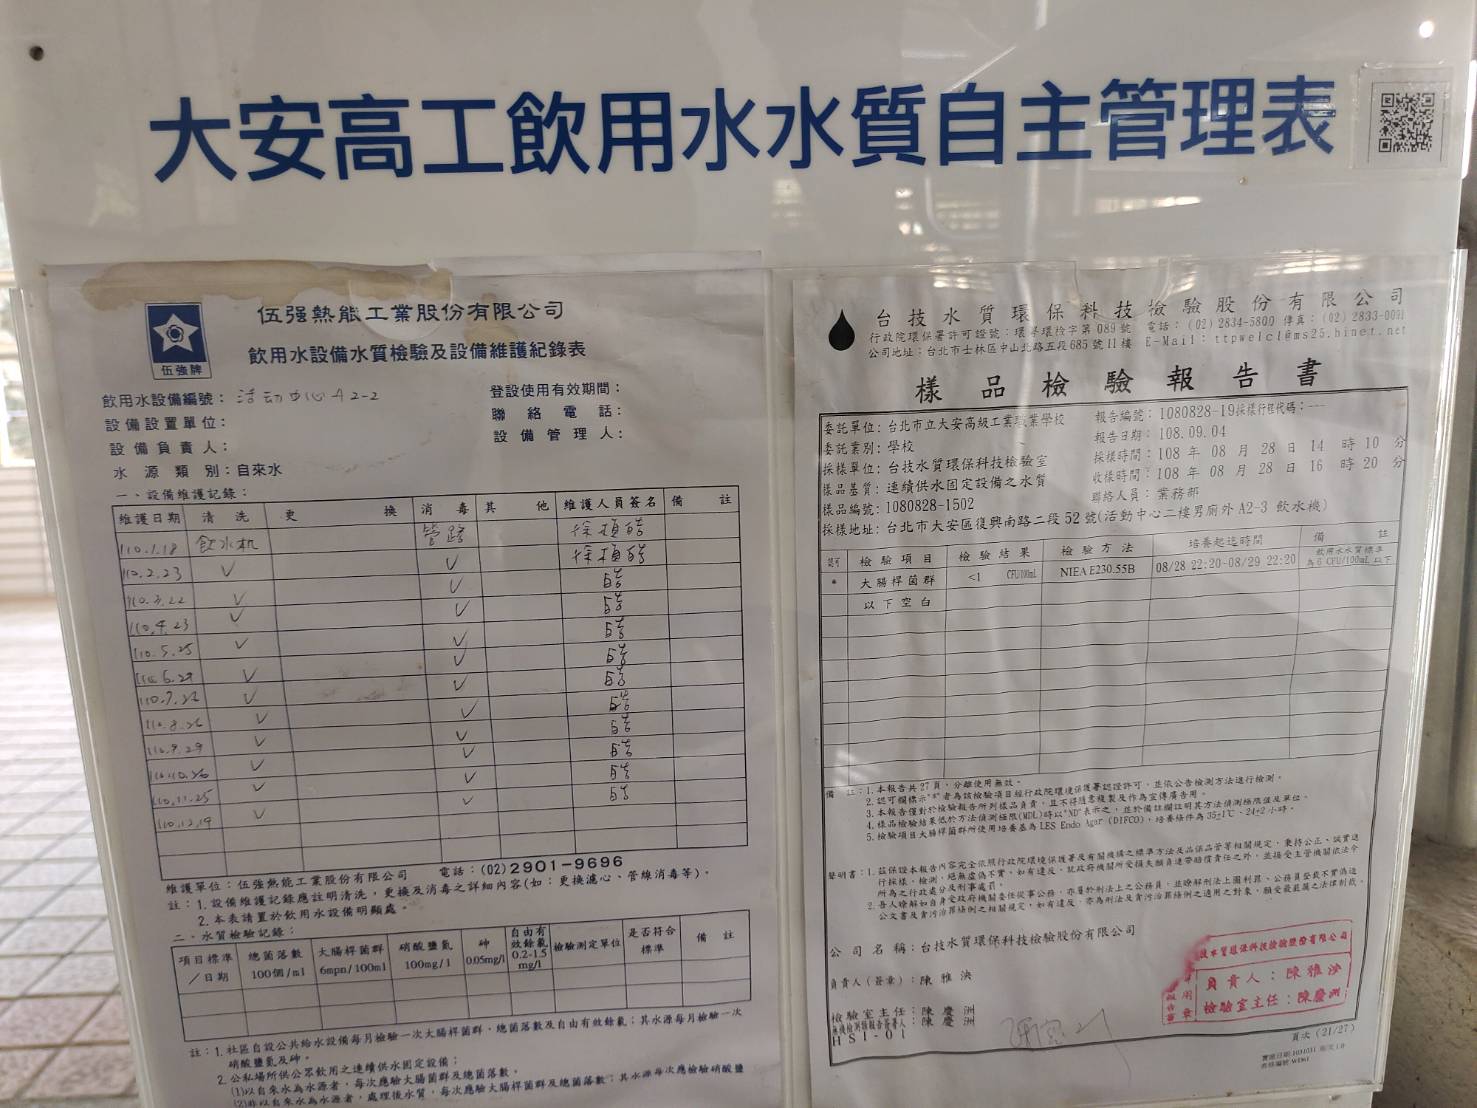 大安高工飲用水水質自主管理表
伍强熱能工業股份有限公司
飲用水設備水質檢驗及設備維護紀錄表
伍強牌
飲用水設備編號：活动中心A2-2
登設使用有效期間：
設備設置單位：
聯絡電話：
設備負責人：
設備管理人：
水源類別：自來水
一、設備維護記錄：
維護日期 清洗 更換 消毒 其他 維護人員簽名 備註
110.1.18 飲水机 管路
110.2.23 ✓ ✓
110.3.22 ✓ ✓
110.4.23 ✓ ✓
110.5.25 ✓ ✓
110.6.29 ✓ ✓
110.7.26 ✓ ✓
110.8.26 ✓ ✓
110.9.29 ✓ ✓
110.10.26 ✓ ✓
110.11.25 ✓ ✓
110.12.19 ✓ ✓
維護單位：伍強熱能工業股份有限公司 電話：(02)2901-9696
註：1.設備維護記錄應註明清洗，更換及消毒之詳細內容(如：更換濾心、管線消毒等)。
2.本表請置於飲用水設備明顯處。
二、水質檢驗記錄：
項目標準／日期 總菌落數100個/ml 大腸桿菌群6mpn/100ml 硝酸鹽氮100mg/l 砷0.05mg/l 自由有效餘氯0.2-1.5mg/l 檢驗測定單位 是否符合標準 備註
註：1.社區自設公共給水設備每月檢驗一次大腸桿菌群、總菌落數及自由有效餘氯；其水源每月檢驗一次
硝酸鹽氮及砷。
2.公私場所供公眾飲用之連續供水固定設備：
(1)以自來水為水源者，每次應驗大腸菌群及總菌落數。
(2)非以自來水為水源者，處理後水質，每次應驗大腸桿菌群及總菌落數；其水源每次應檢驗硝酸鹽
台技水質環保科技檢驗股份有限公司
行政院環保署許可證號：環署環檢字第089號 電話：(02)2834-5800 傳真：(02)2833-0091
公司地址：台北市士林區中山北路五段685號11樓 E-Mail：ttpwelcl@ms25.hinet.net
樣品檢驗報告書
委託單位：台北市立大安高級工業職業學校
報告編號：1080828-19採樣行程代碼：---
委託業別：學校
報告日期：108.09.04
採樣單位：台技水質環保科技檢驗室
採樣時間：108年08月28日14時10分
樣品基質：連續供水固定設備之水質
收樣時間：108年08月28日16時20分
樣品編號：1080828-1502
聯絡人員：業務部
採樣地址：台北市大安區復興南路二段52號(活動中心二樓男廁外A2-3飲水機)
認可 檢驗項目 檢驗結果 檢驗方法 培養起迄時間 備註
* 大腸桿菌群 <1 CFU/100mL NIEA E230.55B 08/28 22:20-08/29 22:20 飲用水水質標準為6 CFU/100mL以下
以下空白
備註：1.本報告共27頁，分離使用無效。
2.認可欄標示"*"者為該檢驗項目經行政院環境保護署認證許可，並依公告檢測方法進行檢測。
3.本報告僅對於檢驗報告所列樣品負責，且不得隨意複製及作為宣傳廣告用。
4.樣品檢驗結果低於方法偵測極限(MDL)時以"ND"表示之，並於備註欄註明其方法偵測極限值及單位。
5.檢驗項目大腸桿菌群所使用培養基為LES Endo Agar (DIFCO)，培養條件為35±1℃、24±2小時。
聲明書：1.茲保證本報告內容完全依照行政院環境保護署及有關機構之標準方法及品保品管等相關規定，秉持公正、誠實進
行採樣、檢測。絕無虛偽不實，如有違反，就政府機關所受損失願負連帶賠償責任之外，並接受主管機關依法令
所為之行政處分及刑事處罰。
2.吾人瞭解如自身受政府機關委任從事公務，亦屬於刑法上之公務員，並瞭解刑法上圖利罪、公務員登載不實偽造
公文書及貪污治罪條例之相關規定，如有違反，亦為刑法及貪污治罪條例之適用之對象，願受最嚴厲之法律制裁。
公司名稱：台技水質環保科技檢驗股份有限公司
負責人(簽章)：陳雅泱
檢驗室主任：陳慶洲
無機檢測類報告簽署人：陳慶洲
HSI-01
負責人：陳雅泱
檢驗室主任：陳慶洲
頁次(21/27)